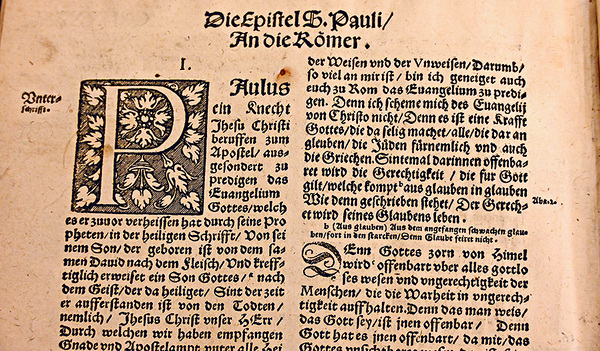 Die Epistel S. Pauli/
An die Römer.
I.
Vnter-
schrifft.
Paulus
ein Knecht
Jhesu Christi
beruffen zum
Apostel/ aus-
gesondert zu
predigen das
Euangelium
Gottes/welch
es er zuvor verheissen hat durch seine Pro
pheten/ in der heiligen Schrifft/ Von sei
nem Son/ der geboren ist von dem sa-
men Dauid nach dem Fleisch/ Vnd kreff-
tiglich erweiset ein Son Gottes/ nach
dem Geist/ der da heiliget/ Sint der zeit
er aufferstanden ist von den Todten/
nemlich/ Jhesus Christ vnser HErr/
Durch welchen wir haben empfangen
Gnade vnd Apostelampt vnter alle Hei
der Weisen vnd der Vnweisen/ Darumb/
so viel an mir ist/ bin ich geneiget auch
euch zu Rom das Euangelium zu predi-
gen. Denn ich scheme mich des Euangelij
von Christo nicht/ Denn es ist eine Krafft
Gottes/ die da selig machet/ alle/ die dar an
gleuben/ die Jüden fürnemlich vnd auch
die Griechen. Sintemal darinnen offenba-
ret wird die Gerechtigkeit/ die fur Gott
gilt/ welche kompt b aus glauben in glauben
Wie denn geschrieben stehet/ Der Gerech-
et wird seines Glaubens leben.
Aba. 2.
b (Aus glauben) Aus dem angefangen schwachen glau
ben/ fort in den starcken/ Denn Glaube feiret nicht.
DEnn Gottes zorn von Himel
wird offenbart vber alles gottlo
ses wesen vnd vngerechtigkeit der
Menschen/ die die Warheit in vngerech-
tigkeit auffhalten. Denn das man weis/
das Gott sey/ ist jnen offenbar/ Denn
Gott hat es jnen offenbart/ da mit/ das